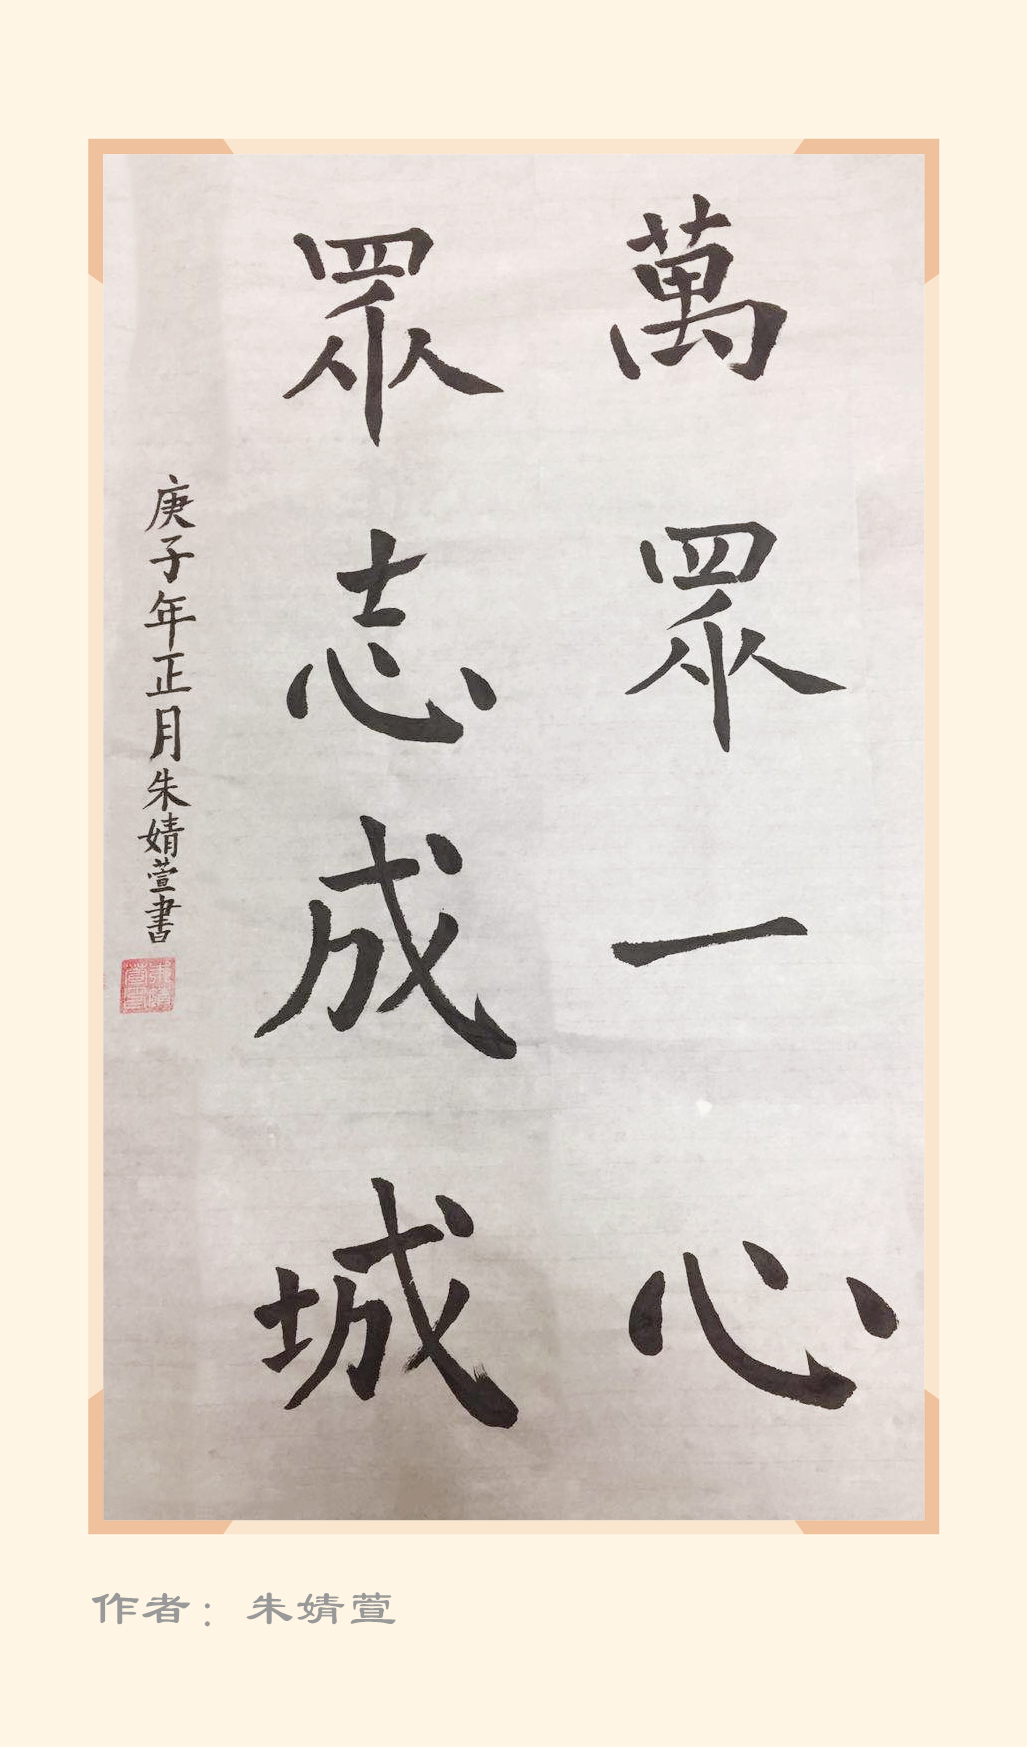 萬眾一心
眾志成城
庚子年正月朱婧萱書
作者：朱婧萱